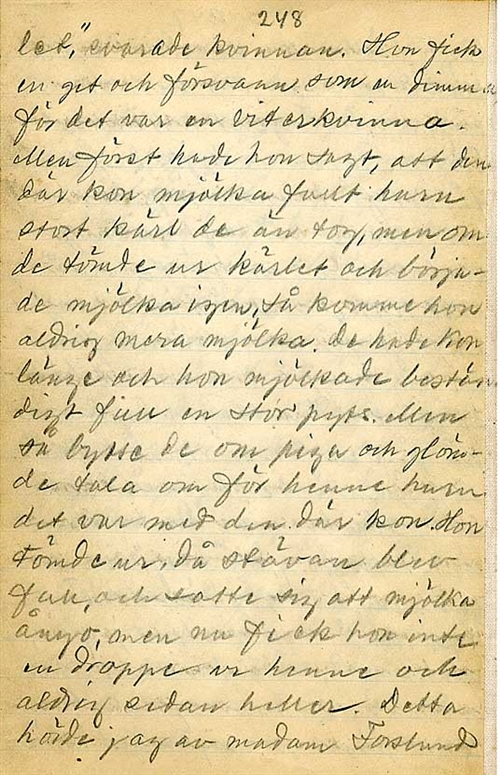 248
let", svarade kvinnan. Hon fick
en get och försvann som en dimma
för det var en viterkvinna.
Men först hade hon sagt, att den
där kon mjölka fullt hura
stort kärl de än tog, men om
de tömde ur kärlet och börja-
de mjölka igen, så komme hon
aldrig mera mjölka. De hade kon
länge och hon mjölkade bestän
digt full en stor pyts. Men
så bytte de om piga och glöm-
de tala om för henne huru
det var med den där kon. Hon
tömde ur, då stävan blev
full, och satte sig att mjölka
ånyo, men nu fick hon inte
en droppe ur henne och
aldrig sedan heller. Detta
hörde jag av madam Forslund